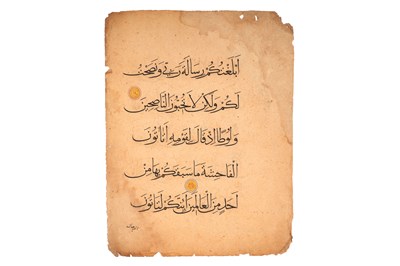 أَبْلَغْتُكُمْ رِسَالَةَ رَبِّي وَنَصَحْتُ
لَكُمْ وَلَكِنْ لَا تُحِبُّونَ النَّاصِحِينَ
وَلُوطًا إِذْ قَالَ لِقَوْمِهِ أَتَأْتُونَ
الْفَاحِشَةَ مَا سَبَقَكُمْ بِهَا مِنْ
أَحَدٍ مِنَ الْعَالَمِينَ أَئِنَّكُمْ لَتَأْتُونَ